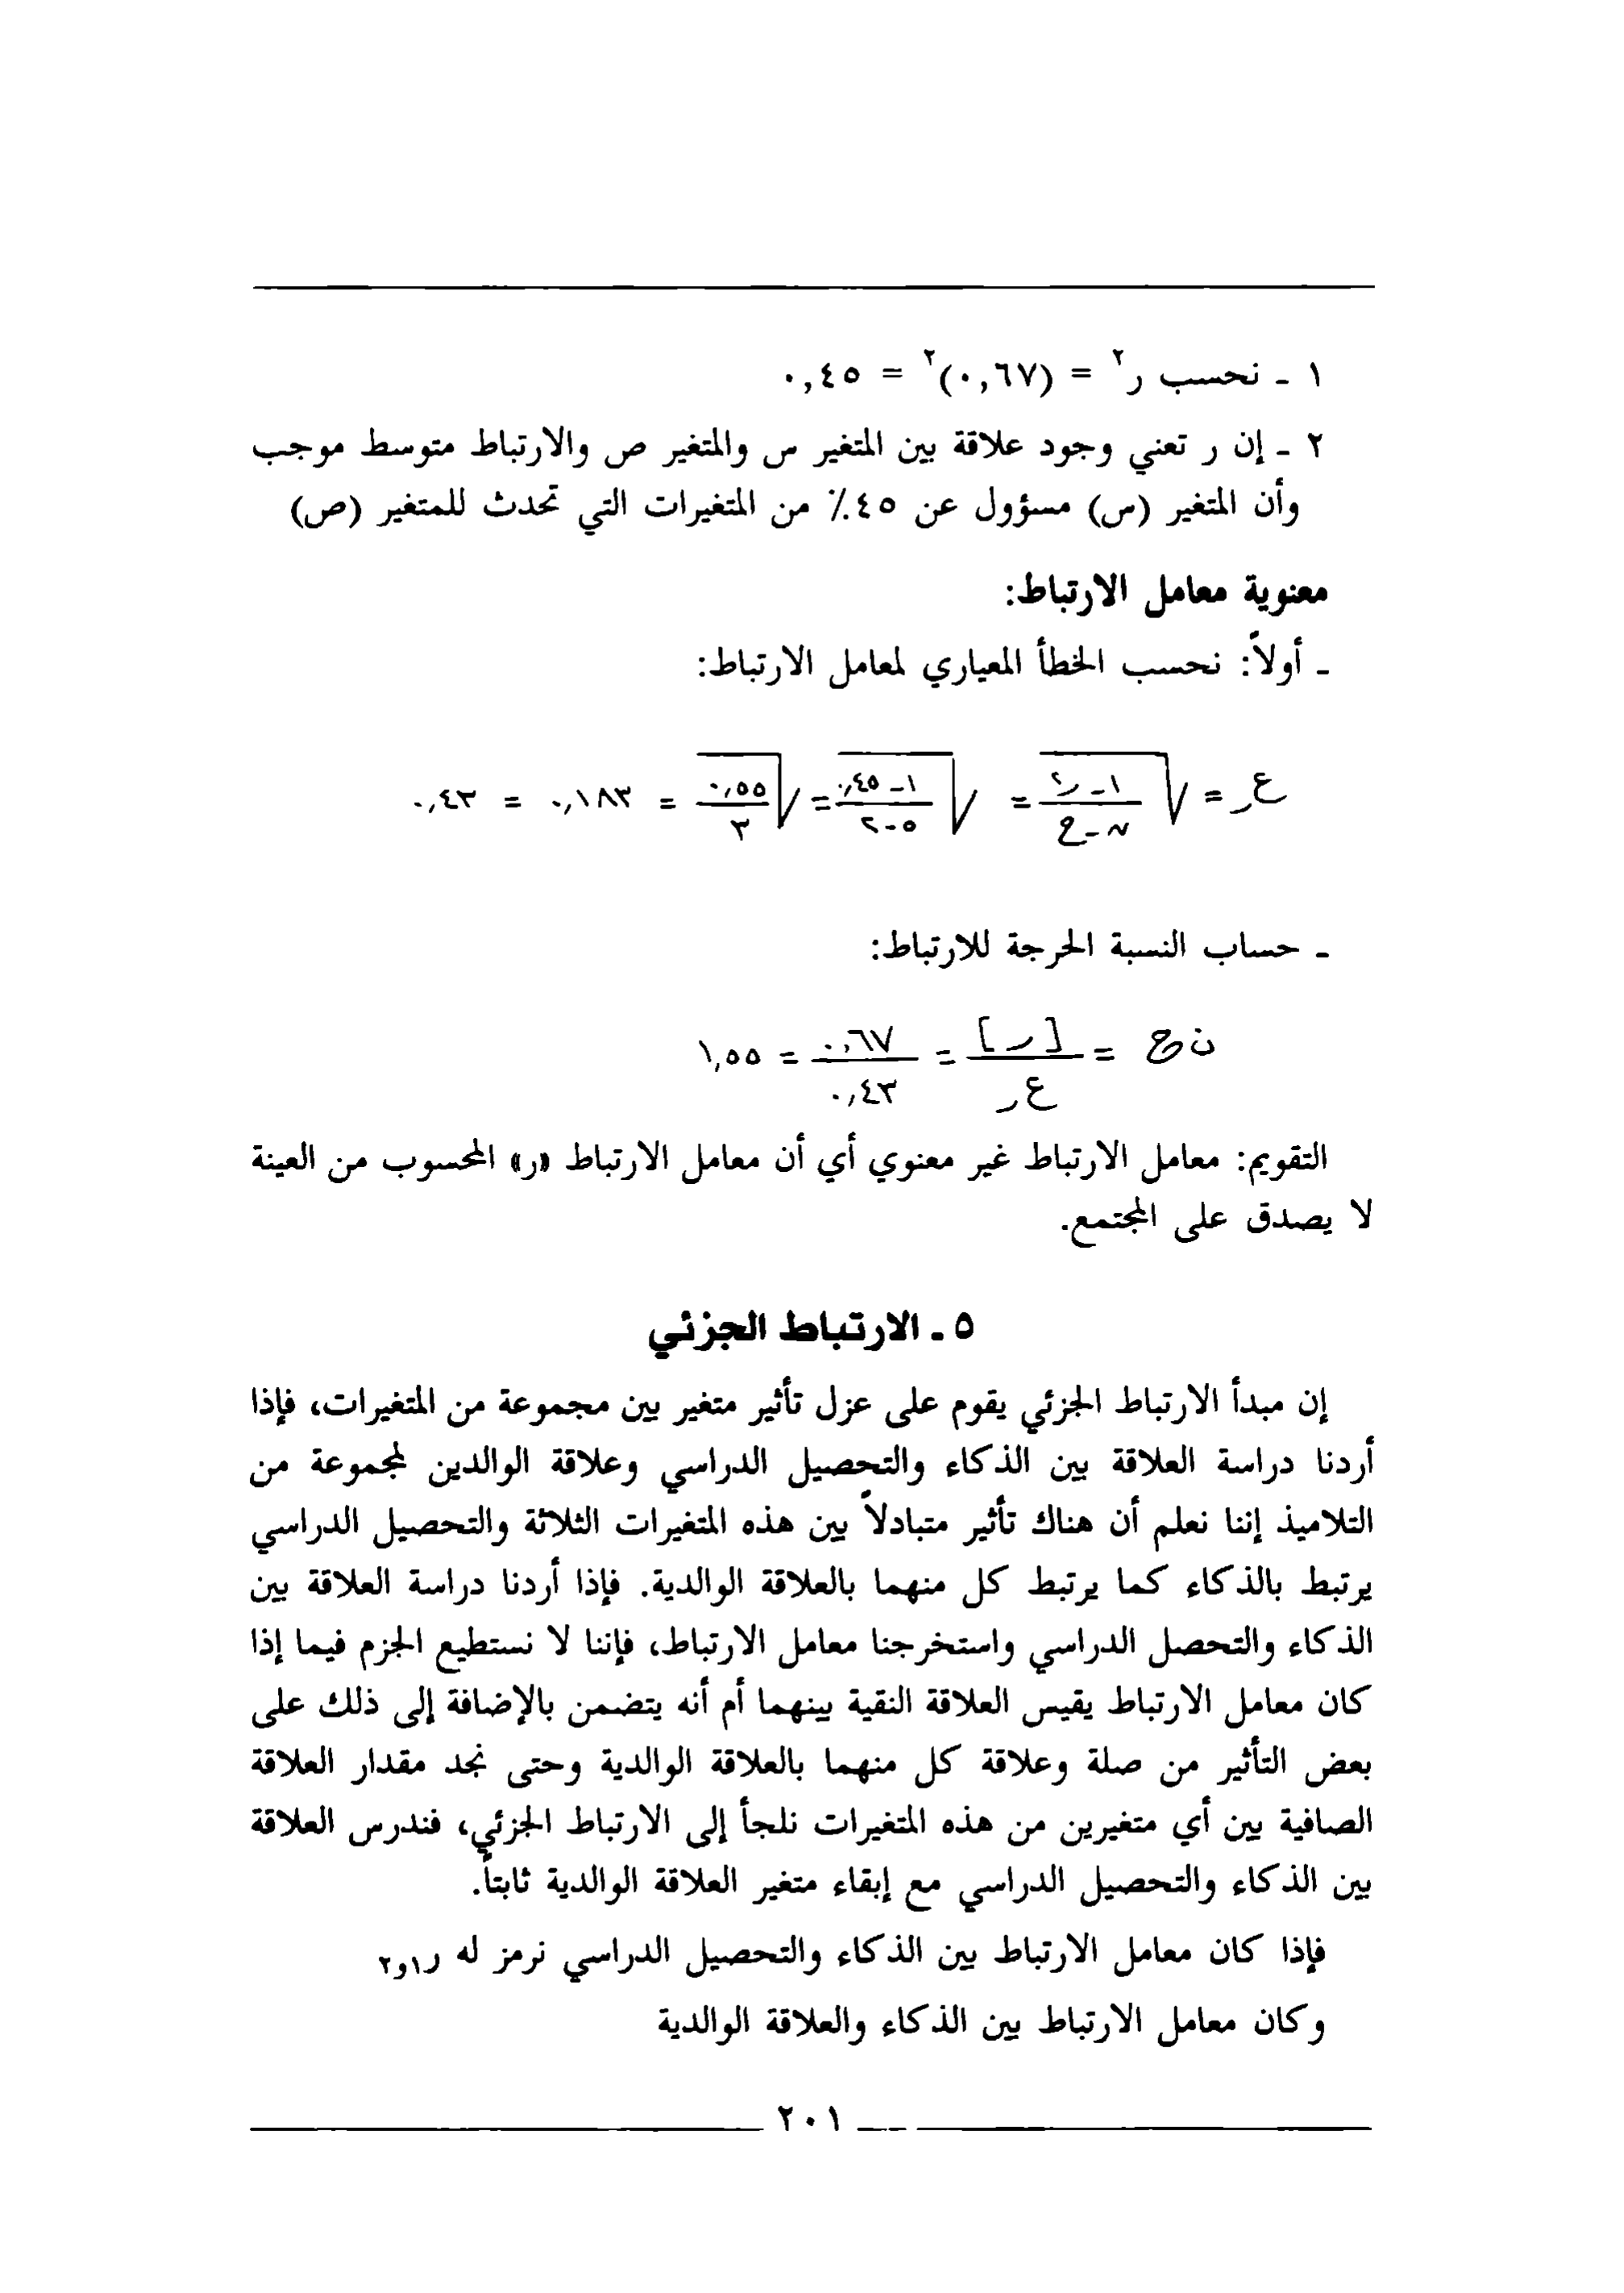 ١ - نحسب ر٢ = (٠,٦٧)٢ = ٠,٤٥
٢ - إن ر تعني وجود علاقة بين المتغير س والمتغير ص والارتباط متوسط موجب
وأن المتغير (س) مسؤول عن ٤٥٪ من المتغيرات التي تحدث للمتغير (ص)
معنوية معامل الارتباط:
- أولاً: نحسب الخطأ المعياري لمعامل الارتباط:
عر = √(١ - ر٢ / ن - ح) = √(١ - ٠,٤٥ / ٥ - ٢) = √(٠,٥٥ / ٣) = ٠,١٨٣ = ٠,٤٣
- حساب النسبة الحرجة للارتباط:
ن ح = [ر] / عر = ٠,٦٧ / ٠,٤٣ = ١,٥٥
التقويم: معامل الارتباط غير معنوي أي أن معامل الارتباط «ر» المحسوب من العينة
لا يصدق على المجتمع.
٥ - الارتباط الجزئي
إن مبدأ الارتباط الجزئي يقوم على عزل تأثير متغير بين مجموعة من المتغيرات، فإذا
أردنا دراسة العلاقة بين الذكاء والتحصيل الدراسي وعلاقة الوالدين لمجموعة من
التلاميذ إننا نعلم أن هناك تأثير متبادلاً بين هذه المتغيرات الثلاثة والتحصيل الدراسي
يرتبط بالذكاء كما يرتبط كل منهما بالعلاقة الوالدية. فإذا أردنا دراسة العلاقة بين
الذكاء والتحصل الدراسي واستخرجنا معامل الارتباط، فإننا لا نستطيع الجزم فيما إذا
كان معامل الارتباط يقيس العلاقة النقية بينهما أم أنه يتضمن بالإضافة إلى ذلك على
بعض التأثير من صلة وعلاقة كل منهما بالعلاقة الوالدية وحتى نجد مقدار العلاقة
الصافية بين أي متغيرين من هذه المتغيرات نلجأ إلى الارتباط الجزئي، فندرس العلاقة
بين الذكاء والتحصيل الدراسي مع إبقاء متغير العلاقة الوالدية ثابتاً.
فإذا كان معامل الارتباط بين الذكاء والتحصيل الدراسي نرمز له ر١و٢
وكان معامل الارتباط بين الذكاء والعلاقة الوالدية
٢٠١